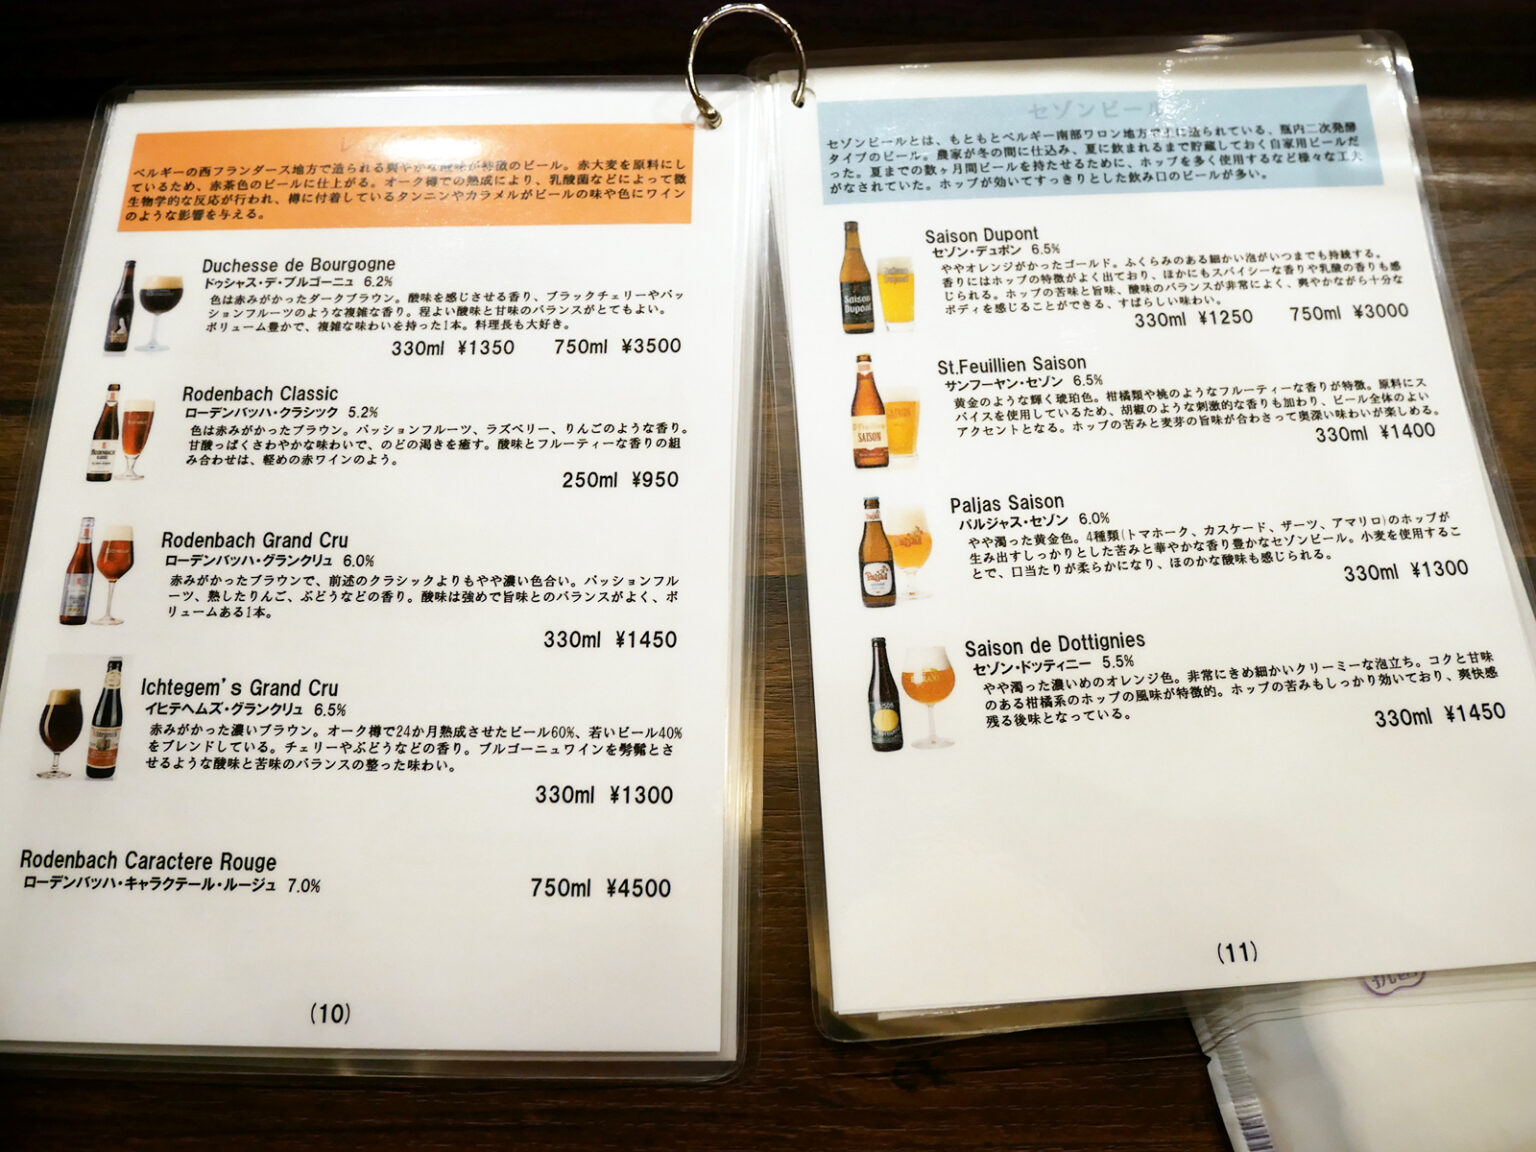 ベルギーの西フランダース地方で造られる爽やかな酸味が特徴のビール。赤大麦を原料にし
ているため、赤茶色のビールに仕上がる。オーク樽での熟成により、乳酸菌などによって微
生物学的な反応が行われ、樽に付着しているタンニンやカラメルがビールの味や色にワイン
のような影響を与える。
Duchesse de Bourgogne
ドゥシャス・デ・ブルゴーニュ 6.2%
色は赤みがかったダークブラウン。酸味を感じさせる香り、ブラックチェリーやパッ
ションフルーツのような複雑な香り。程よい酸味と甘味のバランスがとてもよい。
ボリューム豊かで、複雑な味わいを持った1本。料理長も大好き。
330ml ¥1350 750ml ¥3500
Rodenbach Classic
ローデンバッハ・クラシック 5.2%
色は赤みがかったブラウン。パッションフルーツ、ラズベリー、りんごのような香り。
甘酸っぱくさわやかな味わいで、のどの渇きを癒す。酸味とフルーティーな香りの組
み合わせは、軽めの赤ワインのよう。
250ml ¥950
Rodenbach Grand Cru
ローデンバッハ・グランクリュ 6.0%
赤みがかったブラウンで、前述のクラシックよりもやや濃い色合い。パッションフル
ーツ、熟したりんご、ぶどうなどの香り。酸味は強めで旨味とのバランスがよく、ボ
リュームある1本。
330ml ¥1450
Ichtegem's Grand Cru
イヒテヘムズ・グランクリュ 6.5%
赤みがかった濃いブラウン。オーク樽で24か月熟成させたビール60%、若いビール40%
をブレンドしている。チェリーやぶどうなどの香り。ブルゴーニュワインを髣髴とさ
せるような酸味と苦味のバランスの整った味わい。
330ml ¥1300
Rodenbach Caractere Rouge
ローデンバッハ・キャラクテール・ルージュ 7.0%
750ml ¥4500
(10)
セゾンビール
セゾンビールとは、もともとベルギー南部ワロン地方で主に造られている、瓶内二次発酵
タイプのビール。農家が冬の間に仕込み、夏に飲まれるまで貯蔵しておく自家用ビールだ
った。夏までの数ヶ月間ビールを持たせるために、ホップを多く使用するなど様々な工夫
がなされていた。ホップが効いてすっきりとした飲み口のビールが多い。
Saison Dupont
セゾン・デュポン 6.5%
ややオレンジがかったゴールド。ふくらみのある細かい泡がいつまでも持続する。
香りにはホップの特徴がよく出ており、ほかにもスパイシーな香りや乳酸の香りも感
じられる。ホップの苦味と旨味、酸味のバランスが非常によく、爽やかながら十分な
ボディを感じることができる、すばらしい味わい。
330ml ¥1250 750ml ¥3000
St.Feuillien Saison
サンフーヤン・セゾン 6.5%
黄金のような輝く琥珀色。柑橘類や桃のようなフルーティーな香りが特徴。原料にス
パイスを使用しているため、胡椒のような刺激的な香りも加わり、ビール全体のよい
アクセントとなる。ホップの苦みと麦芽の旨味が合わさって奥深い味わいが楽しめる。
330ml ¥1400
Paljas Saison
パルジャス・セゾン 6.0%
やや濁った黄金色。4種類(トマホーク、カスケード、ザーツ、アマリロ)のホップが
生み出すしっかりとした苦みと華やかな香り豊かなセゾンビール。小麦を使用するこ
とで、口当たりが柔らかになり、ほのかな酸味も感じられる。
330ml ¥1300
Saison de Dottignies
セゾン・ドッティニー 5.5%
やや濁った濃いめのオレンジ色。非常にきめ細かいクリーミーな泡立ち。コクと甘味
のある柑橘系のホップの風味が特徴的。ホップの苦みもしっかり効いており、爽快感
残る後味となっている。
330ml ¥1450
(11)